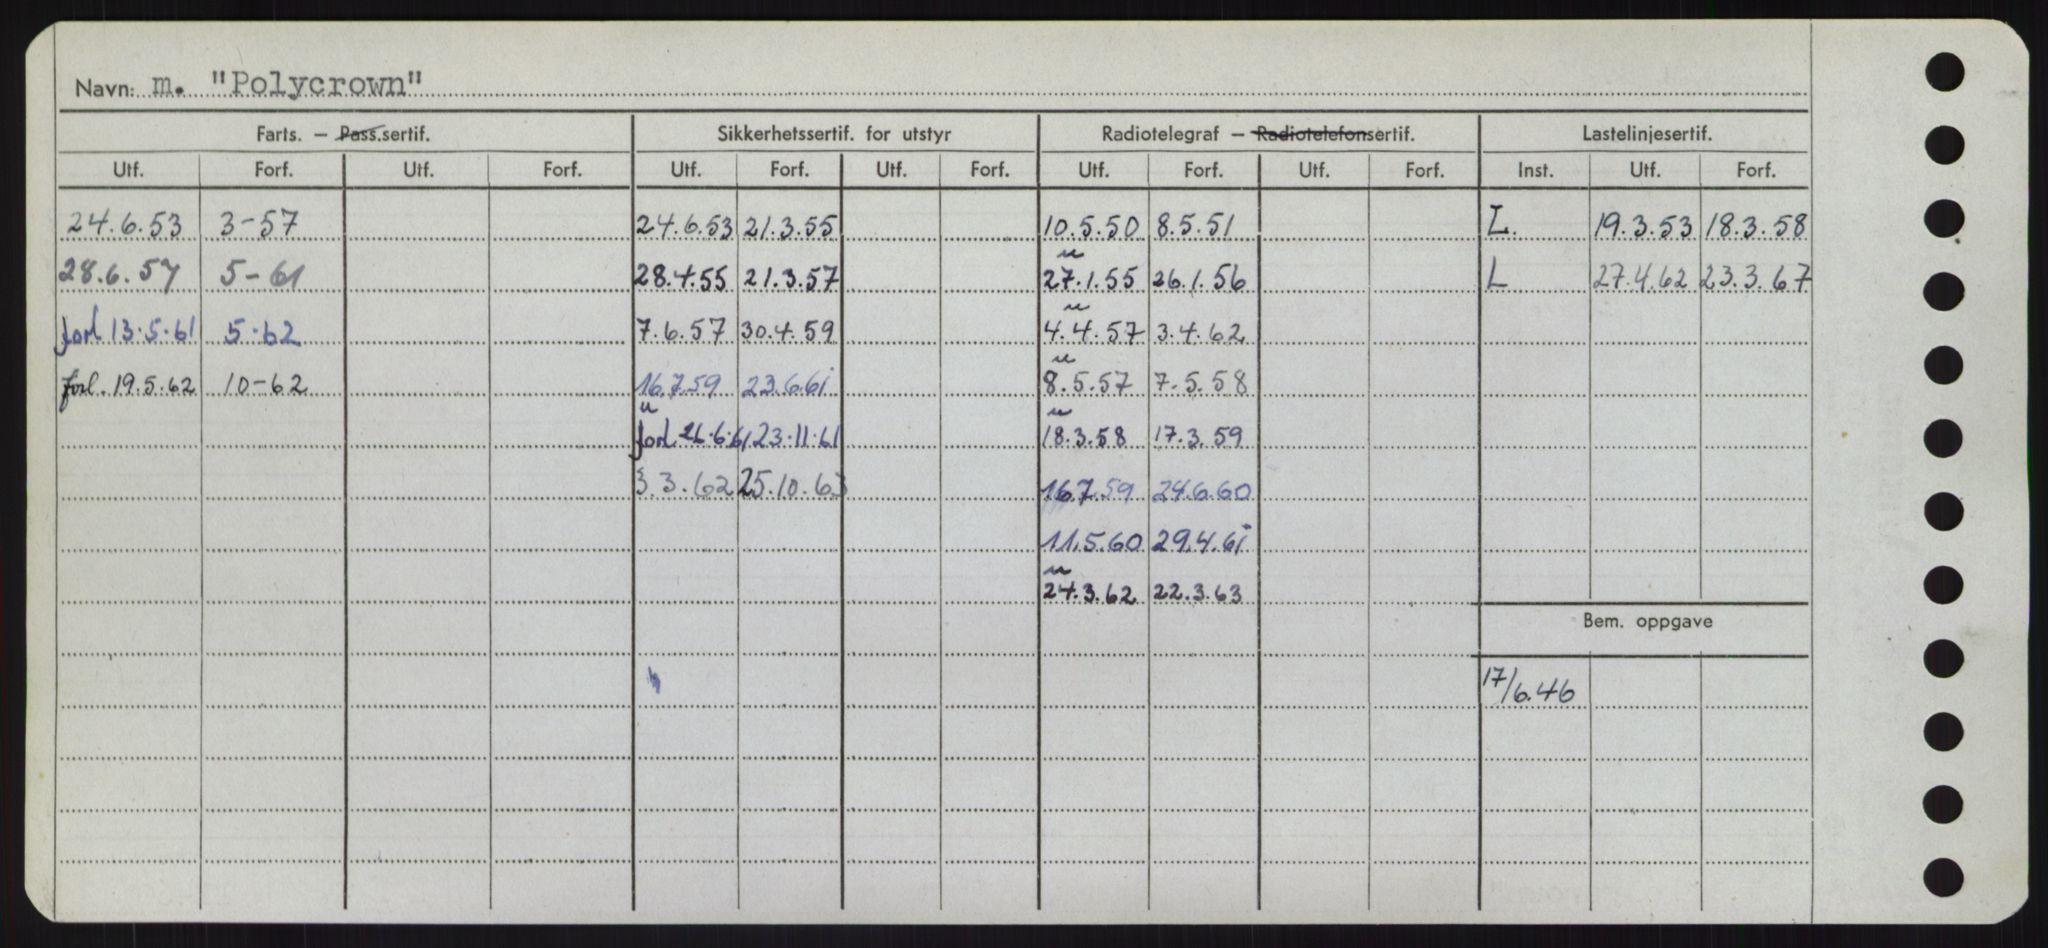 Navn: m. "Polycrown"
Farts. — Pass.sertif. Sikkerhetssertif. for utstyr Radiotelegraf — Radiotelefonsertif. Lastelinjesertif.
Utf. Forf. Utf. Forf. Utf. Forf. Utf. Forf. Utf. Forf. Utf. Forf. Inst. Utf. Forf.
24.6.53 3-57 24.6.53 21.3.55 10.5.50 8.5.51 L. 19.3.53 18.3.58
28.6.57 5-61 28.4.55 21.3.57 u 27.1.55 26.1.56 L 27.4.62 23.3.67
forl 13.5.61 5.62 7.6.57 30.4.59 u 4.4.57 3.4.62
forl. 19.5.62 10-62 16.7.59 23.6.61 u 8.5.57 7.5.58
u forl 26.6.61 23.11.61 u 18.3.58 17.3.59
3.3.62 25.10.63 16.7.59 24.6.60
11.5.60 29.4.61
u 24.3.62 22.3.63
Bem. oppgave
17/6.46